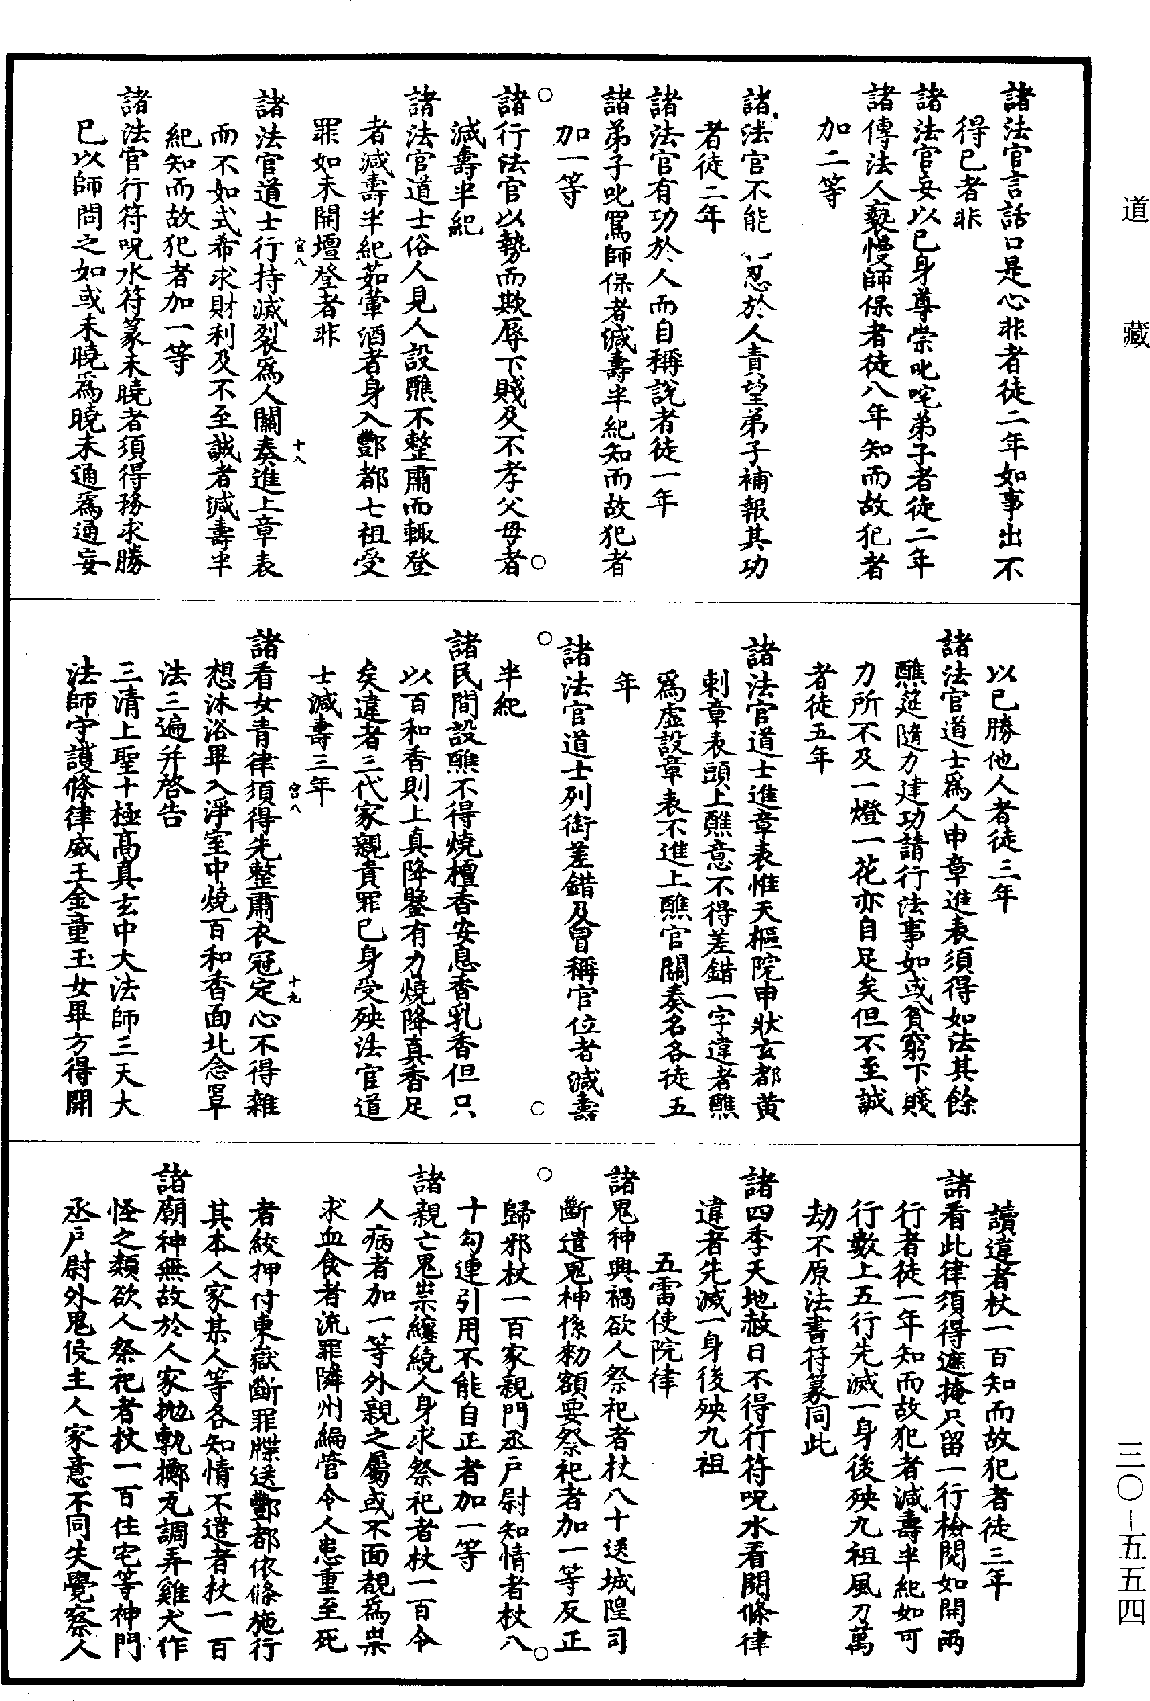 諸法官言話口是心非者徒二年如事出不
得已者非
諸法官妄以已身尊崇叱咤弟子者徒二年
諸傳法人褻慢師保者徒八年知而故犯者
加二等
諸法官不能忍於人責望弟子補報其功
者徒二年
諸法官有功於人而自稱說者徒一年
諸弟子叱罵師保者減壽半紀知而故犯者
加一等
諸行法官以勢而欺辱下賤及不孝父母者
減壽半紀
諸法官道士俗人見人設醮不整肅而輒登
者減壽半紀茹葷酒者身入酆都七祖受
罪如未開壇登者非
宮八
十八
諸法官道士行持滅裂爲人關奏進上章表
而不如式希求財利及不至誠者減壽半
紀知而故犯者加一等
諸法官行符呪水符篆未曉者須得務求勝
已以師問之如或未曉爲曉未通爲通妄
以已勝他人者徒三年
諸法官道士爲人申章進表須得如法其餘
醮筵隨力建功請行法事如或貧窮下賤
力所不及一燈一花亦自足矣但不至誠
者徒五年
諸法官道士進章表惟天樞院申狀玄都黄
剌章表頭上醮意不得差錯一字違者醮
爲虛設章表不進上醮官關奏名各徒五
年
諸法官道士列銜差錯及冒稱官位者減壽
半紀
諸民間設醮不得燒檀香安息香乳香但只
以百和香則上真降鑒有力燒降真香足
矣違者三代家親責罪已身受殃法官道
士減壽三年
宮八
十九
諸看女青律須得先整肅衣冠定心不得雜
想沐浴畢入淨室中燒百和香面北念罩
法三遍并啓告
三清上聖十極高真玄中大法師三天大
法師守護條律威王金童玉女畢方得開
讀違者杖一百知而故犯者徒三年
諸看此律須得遮掩只留一行檢閱如開兩
行者徒一年知而故犯者減壽半紀如可
行數上五行先滅一身後殃九祖風刀萬
劫不原法書符篆同此
諸四季天地赦日不得行符呪水看閱條律
違者先滅一身後殃九祖
五雷使院律
諸鬼神興禍欲人祭祀者杖八十送城隍司
斷遣鬼神係勑額要祭祀者加一等反正
歸邪杖一百家親門丞戸尉知情者杖八
十勾連引用不能自正者加一等
諸親亡鬼祟纏繞人身求祭祀者杖一百令
人病者加一等外親之屬或不面覩爲祟
求血食者流罪隣州編管令人患重至死
者絞押付東嶽斷罪牒送酆都依條施行
其本人家某人等各知情不遣者杖一百
諸廟神無故於人家抛執擲瓦調弄雞犬作
怪之類欲人祭祀者杖一百住宅等神門
丞戸尉外鬼侵主人家意不同失覺察人
道藏
三〇—五五四